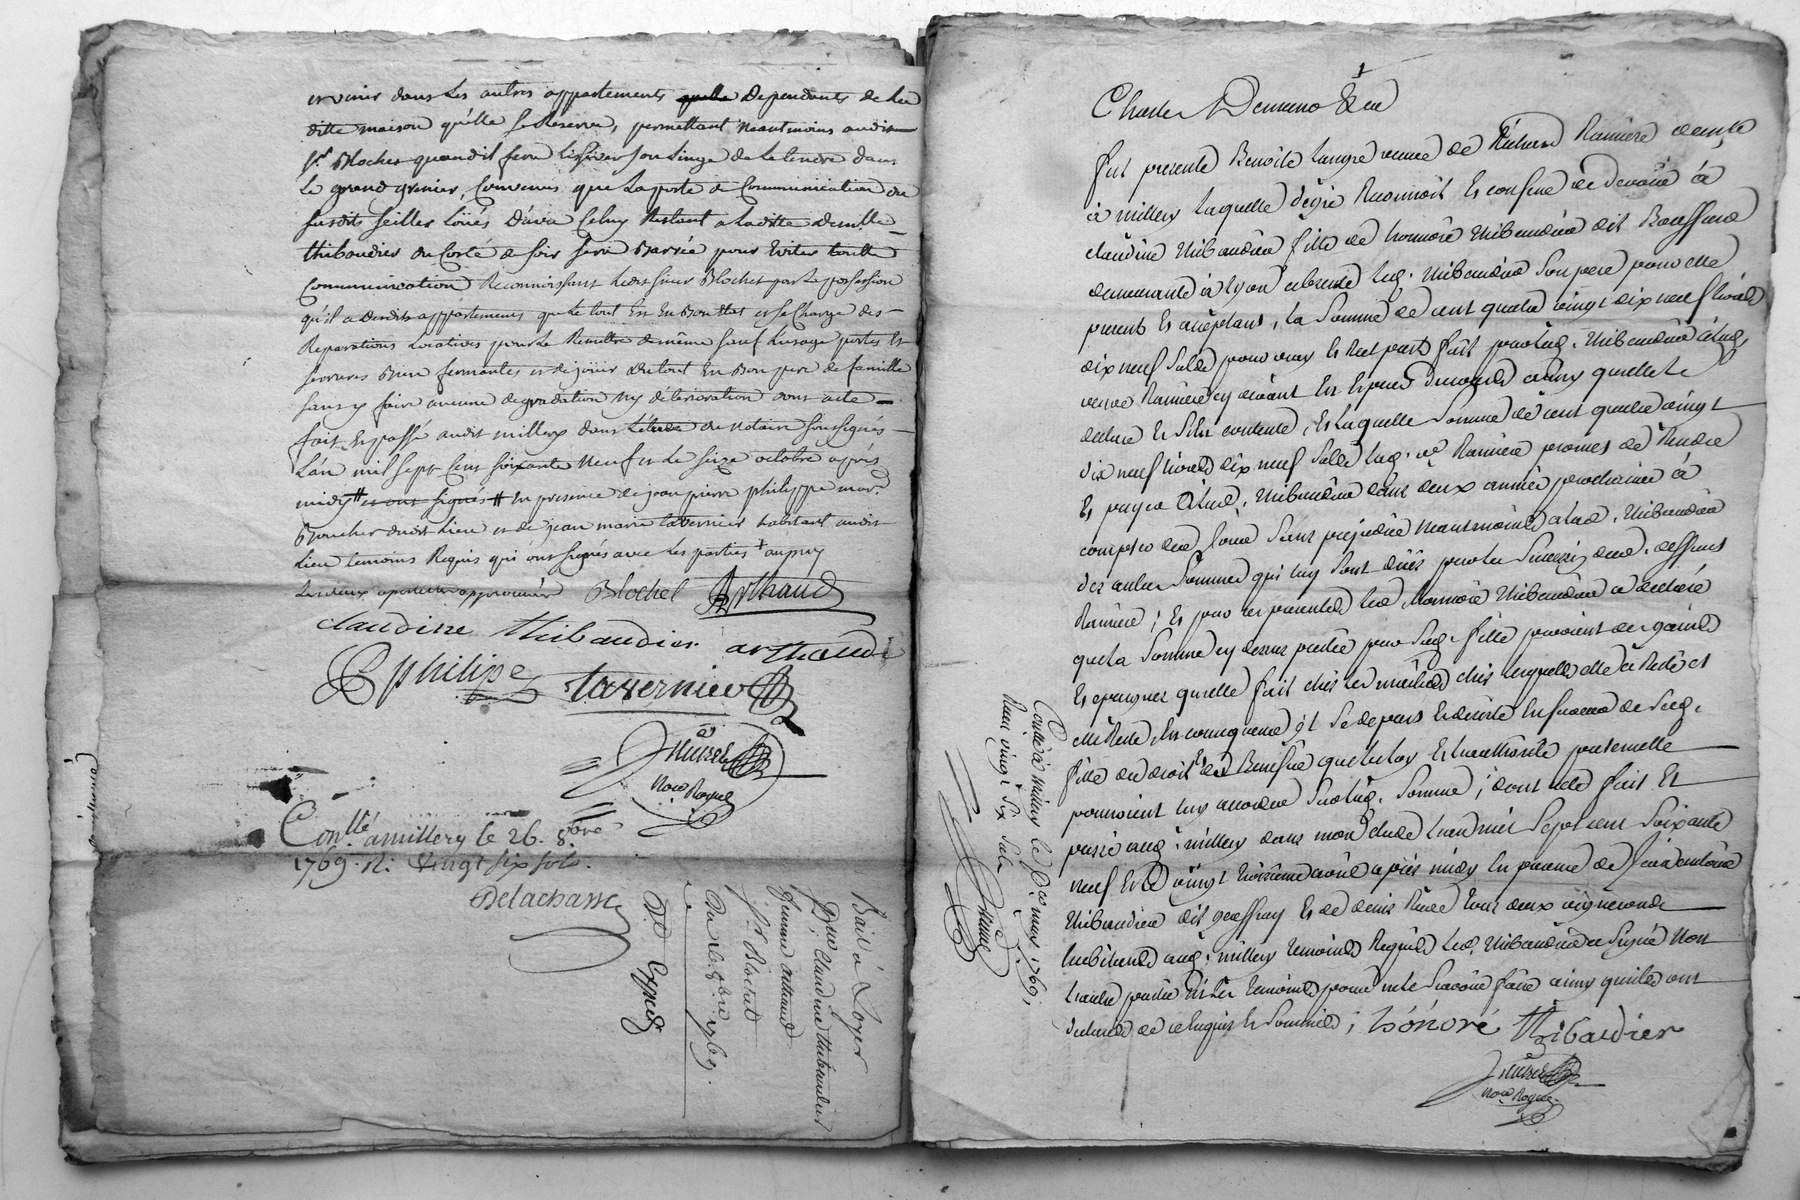 et venir dans les autres appartements quelle dependants de la
ditte maison qu'elle se Reserve, permettant neantmoins audit
Sr Blochet quand il fera lessiver son linge de le tendre dans
le grand grenier, Convenus que la porte de Communication du
susdits loüés d'avec Celuy Restant a laditte Demlle
thibaudier du Costé de soir sera Barrée pour Eviter toutte
Communication Reconnoissant ledit sieur Blochet par la possession
qu'il a desdits appartements que le tout Est En Bon Etat et se Charge des
Reparations locatives pour le Remettre de même sauf l'usage portes Et
serrures Bien fermantes et de joüir du tout En Bon pere de famille
sans y faire aucune degradation ny déterioration dont acte
fait Et passé audit millery dans l'étude du notaire soussignés
L'an mil sept Cent soixante neuf et le seize octobre après
midy # et ont signés # En presence de jean pierre philippe mar.
Boucher dudit lieu et de jean marie tavernier habitant audit
lieu temoins Requis qui ont signés avec les parties
les deux apostilles approuvées Blochet Arthaud
claudine thibaudier arthaud
philipe tavernier
No.re Royal
Conllé a millery le 26. 8.bre
1769. R. Vingt six sols.
Delachasse
Bail à Loyer
Dlle claudine thibaudier
femme arthaud
Sr Blochet
Du 16. 8bre 1769.
Exped
Charles
fut presente Benoite veuve de Raniere demte
à millery laquelle de gré Reconnoit Et confesse de devoir à
claudine thibaudier fille de honnoré thibaudier dit
demeurante à lyon absente led. thibaudier son pere pour elle
present Et acceptant, la somme de cent quatre vingt dix neuf livres
dix neuf sols pour vray Et fait par led. thibaudier à lad.
veuve Raniere cy devant En Especes ainsy quelle le
declare Et s'En contente, Et laquelle somme de cent quatre vingt
dix neuf livres dix neuf sols lad. ve Raniere promet de Rendre
Et payer à lad. thibaudier dans deux années prochaines à
compter de ce jour sans prejudice neantmoins à lad. thibaudier
des autres sommes qui luy sont düës par la dud. deffunt
Raniere; Et par ces presentes led. honnoré thibaudier a declaré
que la somme cy dessus pretée par sad. fille provient des gains
Et epargnes qu'elle a fait chés les maitres chés lesquels elle a Resté et
elle Reste, En consequence il se depart Et desiste En faveur de sad.
fille du droit Et Benefice que la loy Et l'authorité paternelle
pourroient luy accorder sur lad. somme; dont acte fait Et
passé aud. millery dans mon étude l'an mil sept cent soixante
neuf Et le vingt avril après midy En presence de
thibaudier dit geoffray Et de denis tous deux vignerons
habitants aud. millery temoins Requis led. thibaudier a signé non
l'autre partie ni les temoins pour ne le sçavoir faire ainsy qu'ils ont
declaré de ce Enquis Et sommés; hónoré thibaudier
No.re Royal
Conllé à millery le 1769;
Reçu vingt six sols